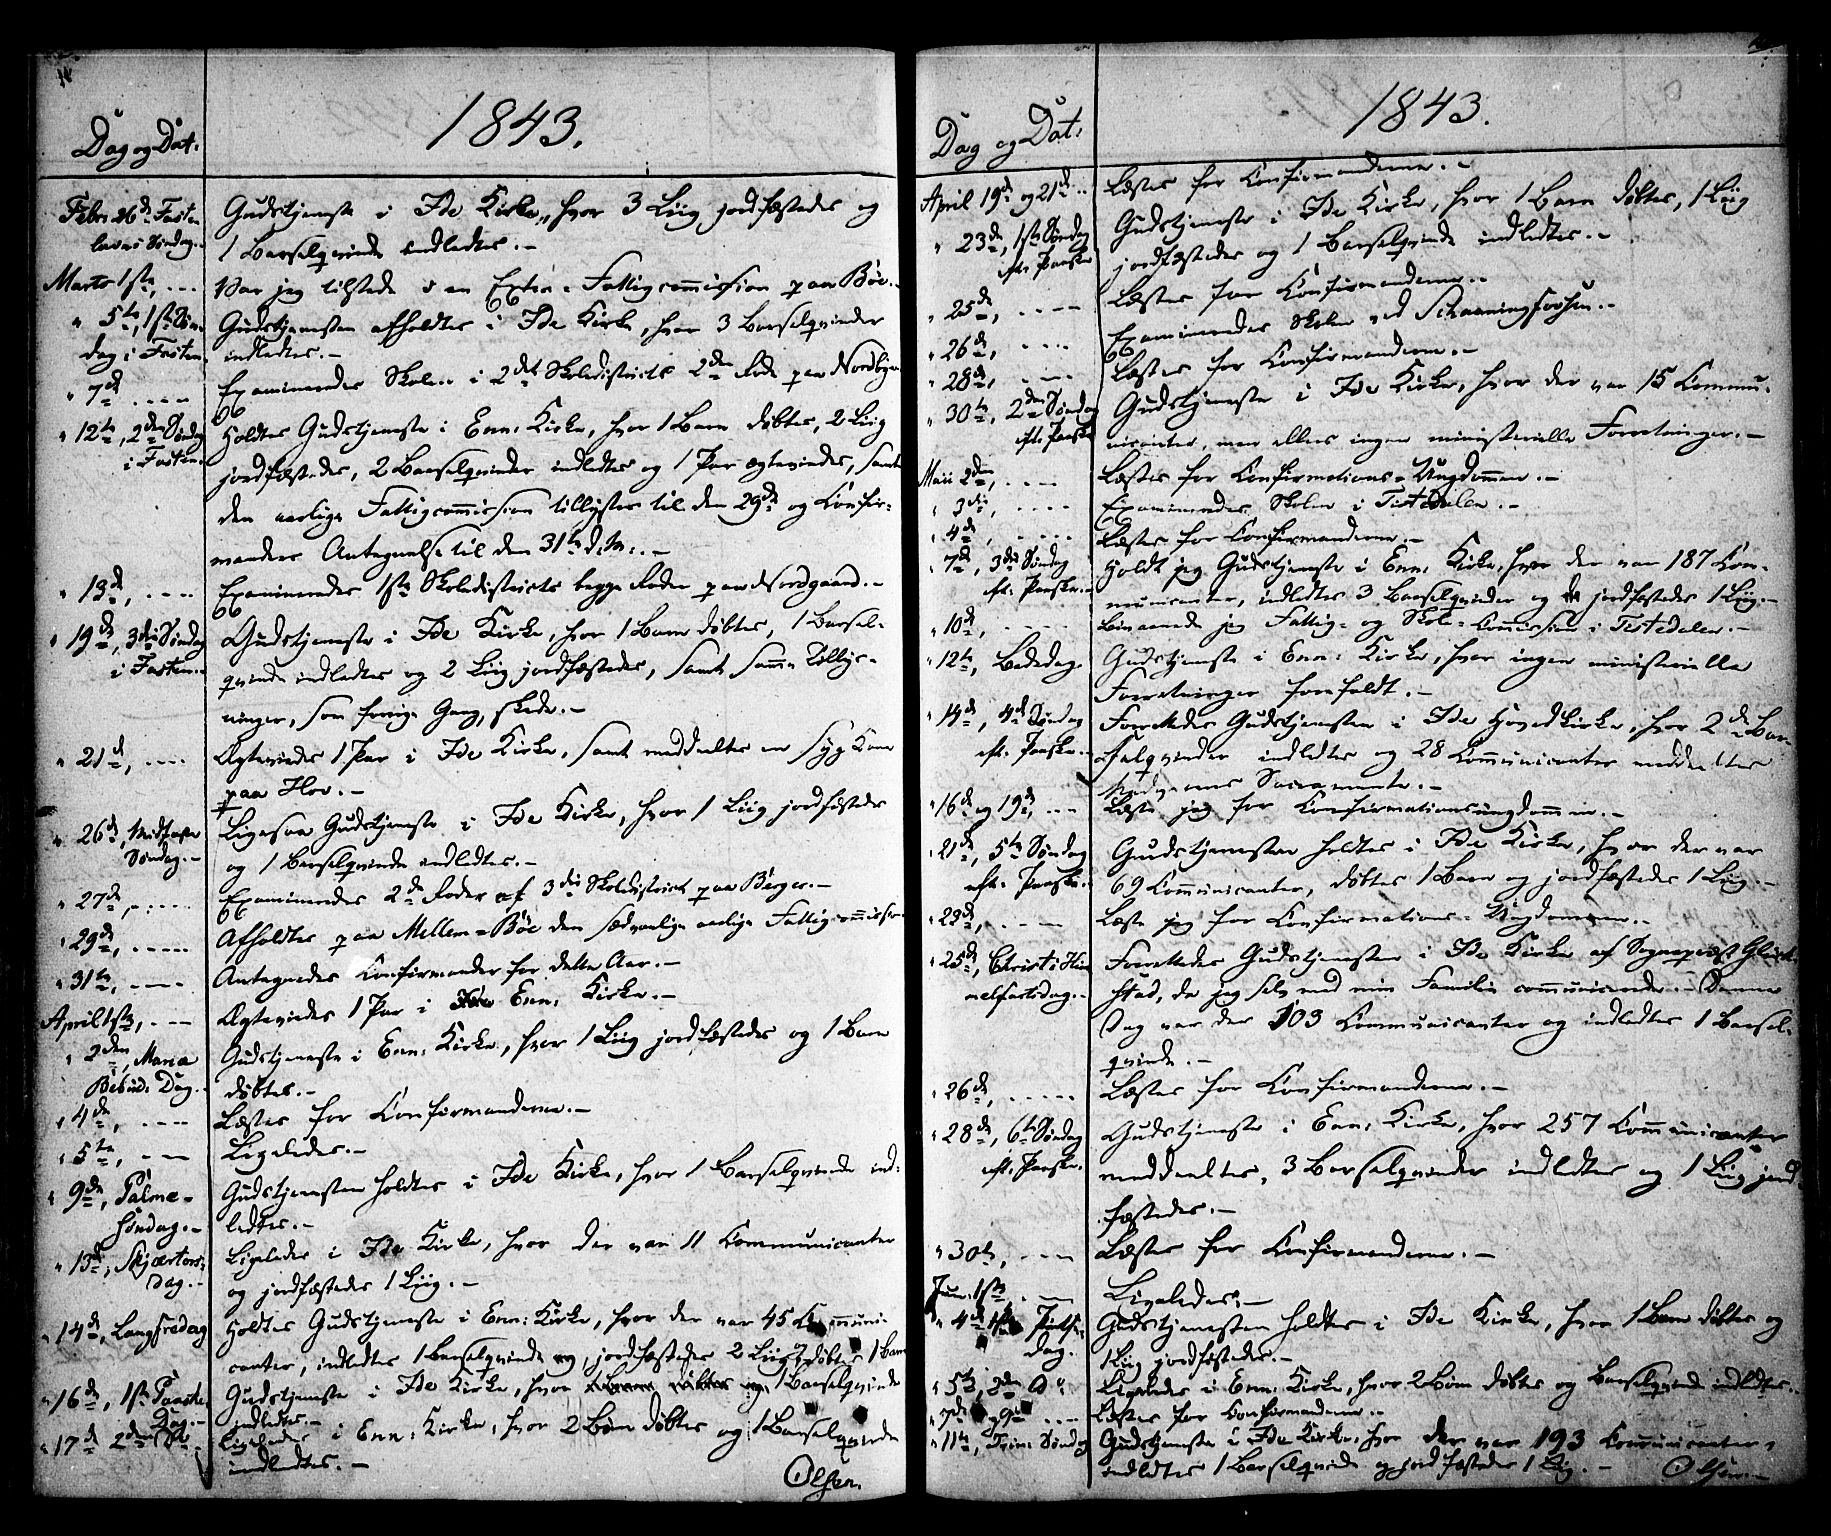 1843.
Dag og Dat:
Febr: 26de Faste-
lavns Søndag.-
Gudstjeneste i Ide Kirke, hvor 3 Liig jordfæstedes og
1 Barselqvinde indledtes.-
Marts 1ste, ---
Var jeg tilstede i en Extra-Fattigcommission paa Böe.-
" 5te, 1ste Søn-
dag i Fasten.
Gudstjenesten afholdtes i Ide Kirke, hvor 3 Barselqvinder
indledtes.-
" 7de ----
Examineredes Skolen i 2det Skoledistricts 2den Rode paa Nordbye.
" 12te, 2den Søndag
i Fasten.
Holdtes Gudstjeneste i Enn: Kirke, hvor 1 Barn døbtes, 2 Liig
jordfæstedes, 2 Barselqvinder indledtes og 1 Par ægteviedes, samt
den aarlige Fattigcommission tillystes til den 29de og Confir-
manders Antegnelse til den 31te d.M:.-
" 13de, ----
Examineredes 1ste Skoledistricts begge Roder paa Nordgaard.-
" 19de, 3die Søndag
i Fasten.-
Gudstjeneste i Ide Kirke, hvor 1 Barn døbtes, 1 Barsel-
qvinde indledtes og 2 Liig jordfæstedes, samt samme Tillys-
ninger, som forrige Gang, skede.-
" 21de, ----
Ægteviedes 1 Par i Ide Kirke, samt meddeeltes en syg Kone
paa Hov.-
" 26de, Midfaste
Søndag.-
Ligesaa Gudstjeneste i Ide Kirke, hvor 1 Liig jordfæstedes
og 1 Barselqvinde indledtes.-
" 27de, ----
Examineredes 2de Roder af 3die Skoledistrict paa Berger.-
" 29de, ----
Afholdtes paa Mellem-Böe den sædvanlige aarlige Fattigcommission
" 31te, ----
Antegnedes Confirmander for dette Aar.-
April 1ste, ---
Ægteviedes 1 Par i Enn: Kirke.-
" 2den, Maria
Bebud: Dag.-
Gudstjeneste i Enn: Kirke, hvor 1 Liig jordfæstedes og 1 Barn
døbtes.-
" 4de, ----
Læstes for Confirmanderne.-
" 5te, ---
Ligeledes.-
" 9de, Palme-
søndag.-
Gudstjenesten holdtes i Ide Kirke, hvor 1 Barselqvinde ind-
ledtes.-
" 13de, Skjærtors-
dag.-
Ligeledes i Ide Kirke, hvor der var 11 Communicanter
og jordfæstedes 1 Liig.-
" 14de, Langfredag
Holdtes Gudstjeneste i Enn: Kirke, hvor der var 45 Communi-
canter, indledtes 1 Barselqvinde, jordfæstedes 2 Liig, døbtes 1 Barn
" 16de, 1ste Paaske
Dag.-
Gudstjeneste i Ide Kirke, hvor 1 Barselqvinde
indledtes.-
" 17de 2den Do -
Ligeledes i Enn: Kirke, hvor 2 Børn døbtes og 1 Barselqvinde
indledtes.-
Olsen.
1843.
Dag og Dat:
April 19de og 21de --
Læstes for Confirmanderne.-
" 23de, 1ste Søndag
eft: Paaske
Gudstjeneste i Ide Kirke, hvor 1 Barn døbtes, 1 Liig
jordfæstedes og 1 Barselqvinde indledtes.-
" 25de, ----
Læstes for Confirmanderne.-
" 26de, ----
Examineredes Skolen ved Schaaningsfossen.-
" 28de, ----
Læstes for Confirmanderne.-
" 30te, 2den Søndag
eft: Paaske
Gudstjeneste i Ide Kirke, hvor der var 15 Commu-
nicanter, men ellers ingen ministerielle Forretninger.-
Maii 2den, ----
Læstes for Confirmations-Ungdommen.-
" 3die, ----
Examineredes Skolen i Tistedalen.-
" 4de, ----
Læstes for Confirmanderne.-
" 7de, 3die Søndag
eft: Paaske.-
Holdt jeg Gudstjeneste i Enn: Kirke, hvor der var 187 Com-
municanter, indledtes 3 Barselqvinder og jordfæstedes 1 Liig.-
" 10de, ----
Bivaanede jeg Fattig- og Skole-Commission i Tistedalen.-
" 12te, Bededag.
Gudstjeneste i Enn: Kirke, hvor ingen ministerielle
Forretninger forefaldt.-
" 14de, 4de Søndag
eft: Paaske.-
Forrettedes Gudstjenesten i Ide Hovedkirke, hvor 2de Bar-
selqvinder indledtes og 28 Communicanter meddeeltes
Nadverens Sacramente.-
" 16de og 19de, ---
Læste jeg for Confirmationsungdommen.-
" 21de, 5te Søndag
eft: Paaske.-
Gudstjenesten holdtes i Ide Kirke, hvor der var
69 Communicanter, døbtes 1 Barn og jordfæstedes 1 Liig.-
" 23de, ----
Læste jeg for Confirmations-Ungdommen.-
" 25de, Christi Him-
melfartsdag.-
Forrettedes Gudstjenesten i Ide Kirke af Sognepræst Glück-
stad, da jeg selv med min Familie communicerede.- Denne
Dag var der 103 Communicanter og indledtes 1 Barsel-
qvinde.-
" 26de, -----
Læstes for Confirmanderne.-
" 28de, 6te Søndag
eft: Paaske.
Gudstjeneste i Enn: Kirke, hvor 257 Communicanter
meddeeltes, 3 Barselqvinder indledtes og 1 Liig jord-
fæstedes.-
" 30te, ---
Læstes for Confirmanderne.-
Juni 1ste, ---
Ligeledes.-
" 4de 1ste Pintse-
dag.
Gudstjenesten holdtes i Ide Kirke, hvor 1 Barn døbtes og
1 Liig jordfæstedes.-
" 5te, 2den Do
Ligeledes i Enn: Kirke, hvor 2 Børn døbtes og Barselqvinde indledtes.
" 7de og 9de ---
Læstes for Confirmanderne.-
" 11te, Trin: Søndag
Gudstjeneste i Ide Kirke, hvor der var 193 Communicanter,
indledtes 1 Barselqvinde og jordfæstedes 1 Liig.-
Olsen.-